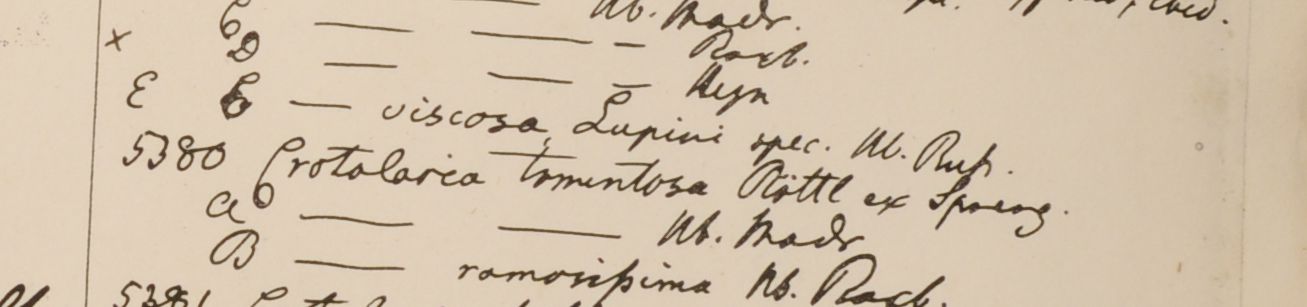 C — — Hb. Madr.
× D — — — Roxb.
— — — Heyn
E — viscosa, Lupini spec. Hb. Russ.
5380 Crotalaria tomentosa Röttl ex Spreng.
a — — Hb. Madr
B — ramosissima Hb. Roxb.
5381